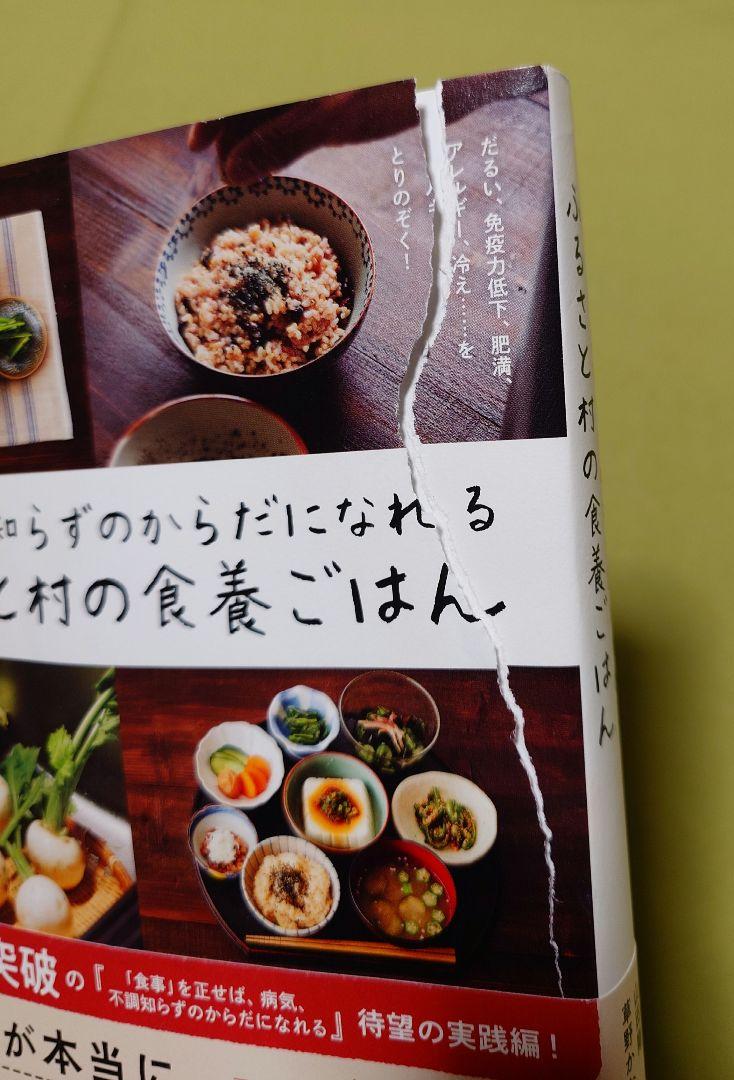 だるい、免疫力低下、肥満、
アレルギー、冷え……を
とりのぞく!
知らずのからだになれる
と村の食養ごはん
ふるさと村の食養ごはん
突破の『「食事」を正せば、病気、
不調知らずのからだになれる』待望の実践編!
が本当に